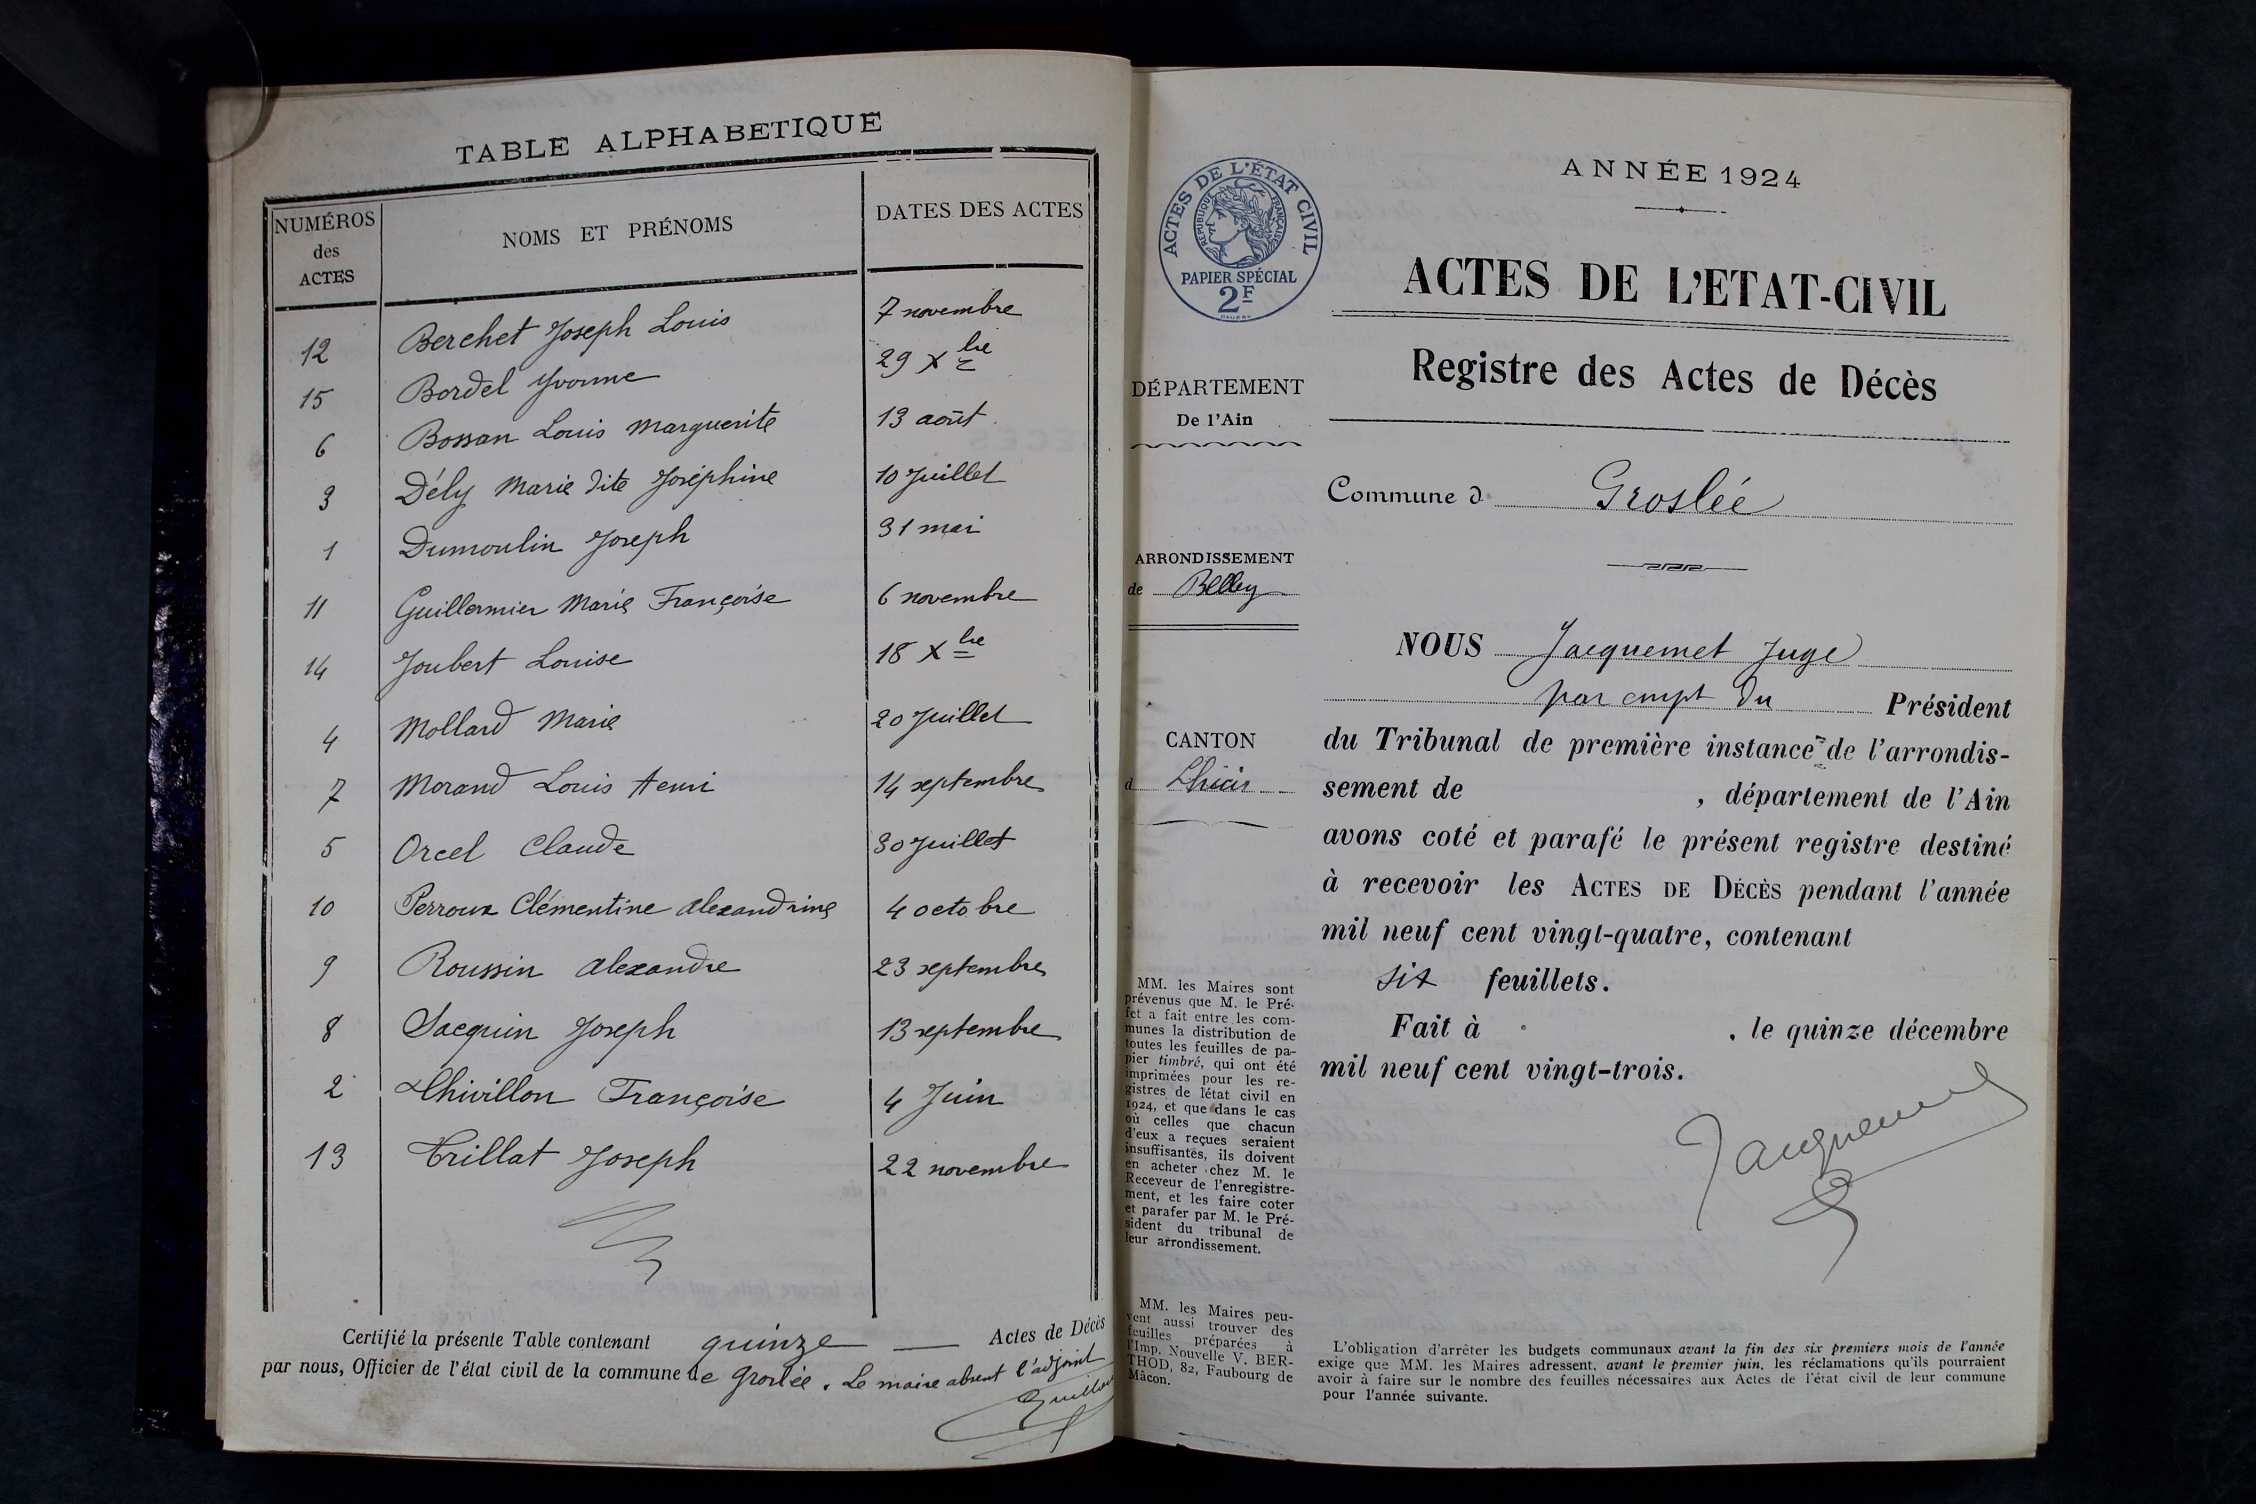 TABLE ALPHABETIQUE
NUMÉROS des ACTES NOMS ET PRÉNOMS DATES DES ACTES
12 Berchet Joseph Louis 7 novembre
15 Bordel Yvonne 29 Xbre
6 Bossan Louis Marguerite 13 août
3 Dély Marie dite Joséphine 10 Juillet
1 Dumoulin Joseph 31 mai
11 Guillermier Marie Françoise 6 novembre
14 Joubert Louise 18 Xbre
4 Mollard Marie 20 Juillet
7 Morand Louis Henri 14 septembre
5 Orcel Claude 30 Juillet
10 Perroux Clémentine Alexandrine 4 octobre
9 Roussin Alexandre 23 septembre
8 Sacquin Joseph 13 septembre
2 Thivillon Françoise 4 Juin
13 Trillat Joseph 22 novembre
Certifié la présente Table contenant quinze Actes de Décès
par nous, Officier de l'état civil de la commune de Groslée. Le maire absent l'adjoint
ACTES DE L'ÉTAT CIVIL
RÉPUBLIQUE FRANÇAISE
PAPIER SPÉCIAL
2F
DÉPARTEMENT
De l'Ain
ARRONDISSEMENT
de Belley
CANTON
d Lhuis
MM. les Maires sont
prévenus que M. le Pré-
fet a fait entre les com-
munes la distribution de
toutes les feuilles de pa-
pier timbré, qui ont été
imprimées pour les re-
gistres de l'état civil en
1924, et que dans le cas
où celles que chacun
d'eux a reçues seraient
insuffisantes, ils doivent
en acheter chez M. le
Receveur de l'enregistre-
ment, et les faire coter
et parafer par M. le Pré-
sident du tribunal de
leur arrondissement.
MM. les Maires peu-
vent aussi trouver des
feuilles préparées à
l'Imp. Nouvelle V. BER-
THOD, 82, Faubourg de
Mâcon.
ANNÉE 1924
ACTES DE L'ETAT-CIVIL
Registre des Actes de Décès
Commune d Groslée
NOUS Jacquemet Juge
par empt du Président
du Tribunal de première instance de l'arrondis-
sement de , département de l'Ain
avons coté et parafé le présent registre destiné
à recevoir les ACTES DE DÉCÈS pendant l'année
mil neuf cent vingt-quatre, contenant
six feuillets.
Fait à , le quinze décembre
mil neuf cent vingt-trois.
Jacquemet
L'obligation d'arrêter les budgets communaux avant la fin des six premiers mois de l'année
exige que MM. les Maires adressent, avant le premier juin, les réclamations qu'ils pourraient
avoir à faire sur le nombre des feuilles nécessaires aux Actes de l'état civil de leur commune
pour l'année suivante.